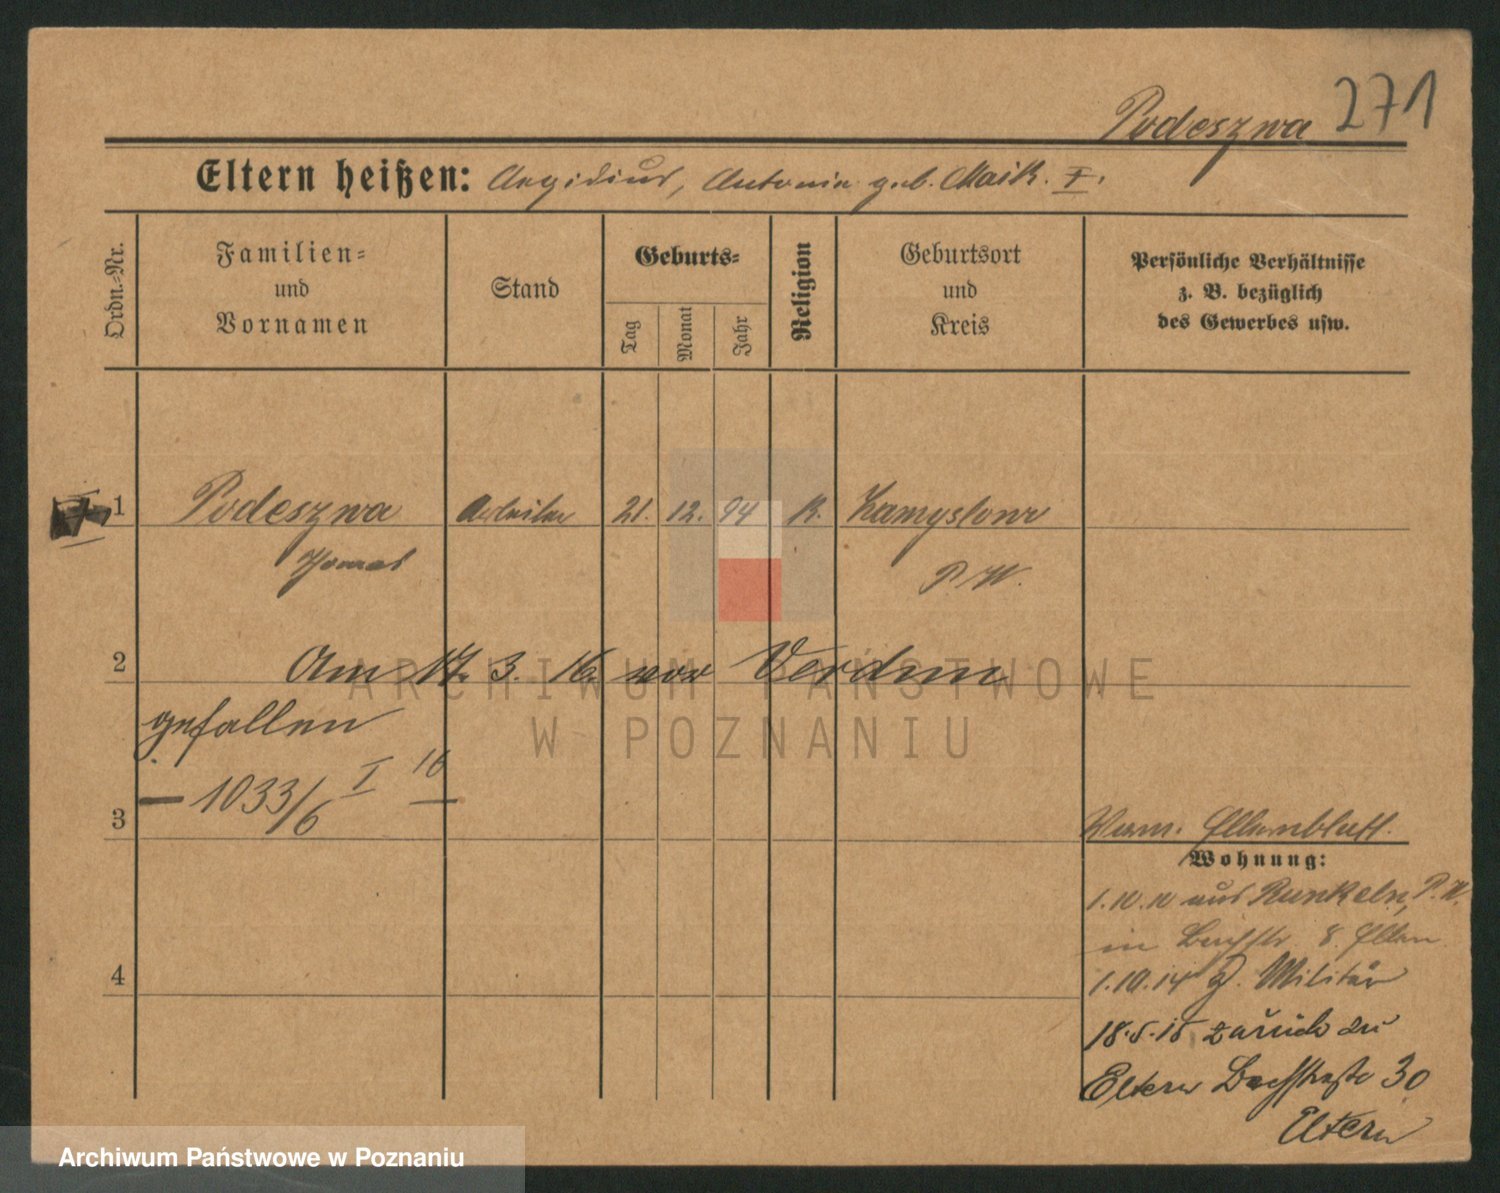 Podeszwa 271
Eltern heißen: Aegidius, Antonie geb. Maik. I.
Ordn.-Nr.
Familien-
und
Vornamen
Stand
Geburts-
Tag
Monat
Jahr
Religion
Geburtsort
und
Kreis
Persönliche Verhältnisse
z. B. bezüglich
des Gewerbes usw.
1 Podeszwa Arbeiter 21. 12. 94 K.
P. W.
2 Am 17. 3. 16. vor Verdun
gefallen
1033/6 I 16
3
Elternblatt.
Wohnung:
1.10. aus Runkeln, P. W.
in Bachstr 8. Eltern
1.10.14 z. Militär
18.5.15 zurück zu
Eltern Bachstraße 30
Eltern
4
ARCHIWUM PAŃSTWOWE
W POZNANIU
Archiwum Państwowe w Poznaniu